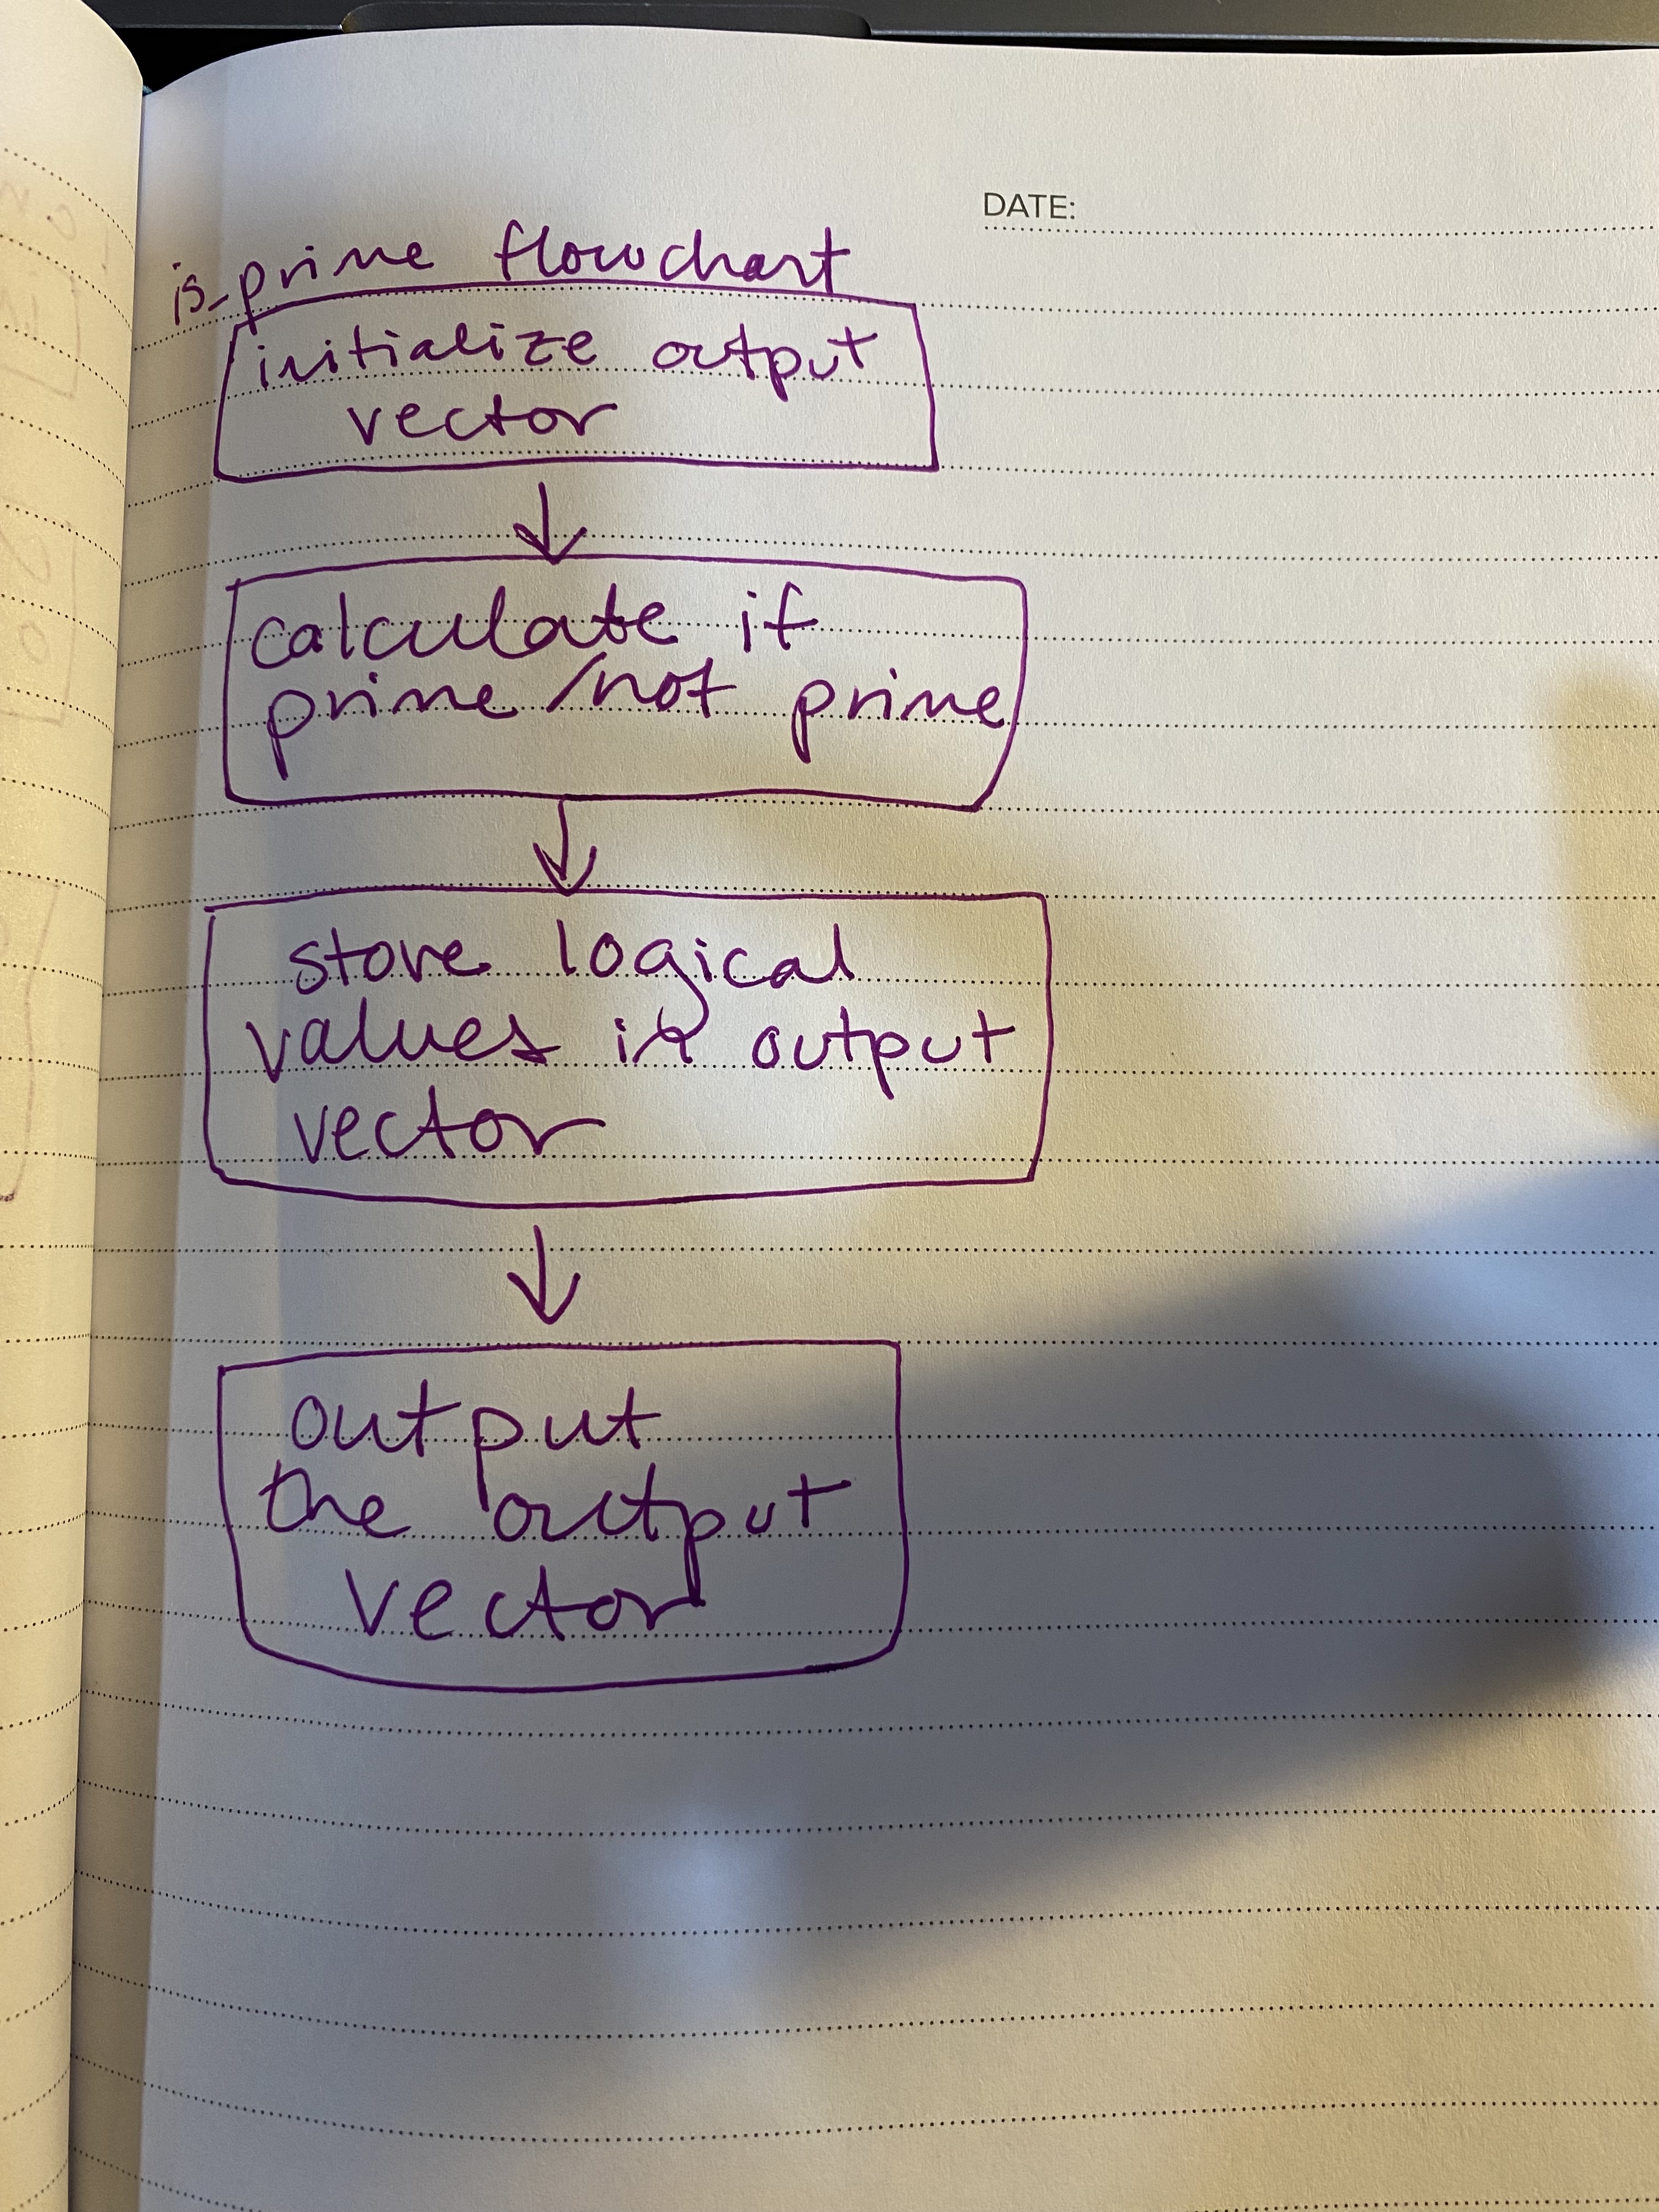 DATE:
is_prime flowchart
initialize output
vector
calculate if
prime/not prime
store logical
values in output
vector
output
the output
vector